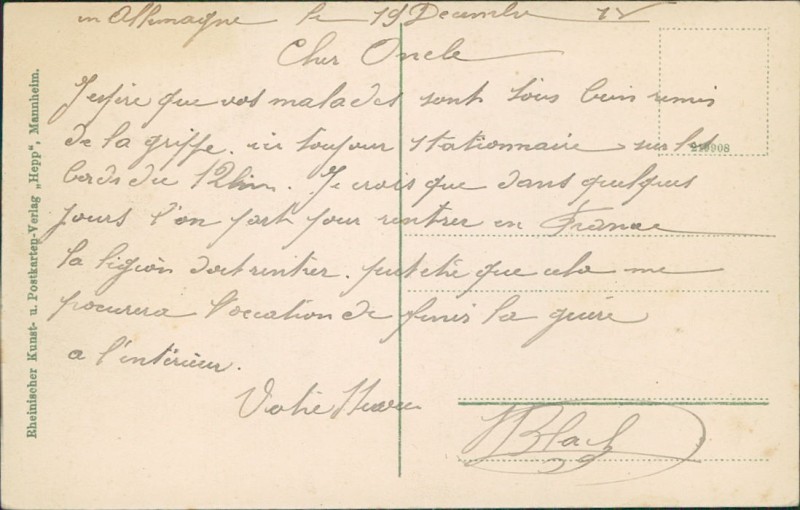 en Allemagne le 19 Decembre 18
Cher Oncle
J'espire que vos malades sont tous bien remis
de la griffe. ici toujour stationnaire sur les
bords du Rhin. Je crois que dans quelques
jours l'on part pour rentrer en France
la ligion doit rentrer. peut etre que cela me
procurera l'occation de finir la guère
a l'intérieur.
Votre Neveu
Blach
Rheinischer Kunst- u. Postkarten-Verlag „Hepp“, Mannheim.